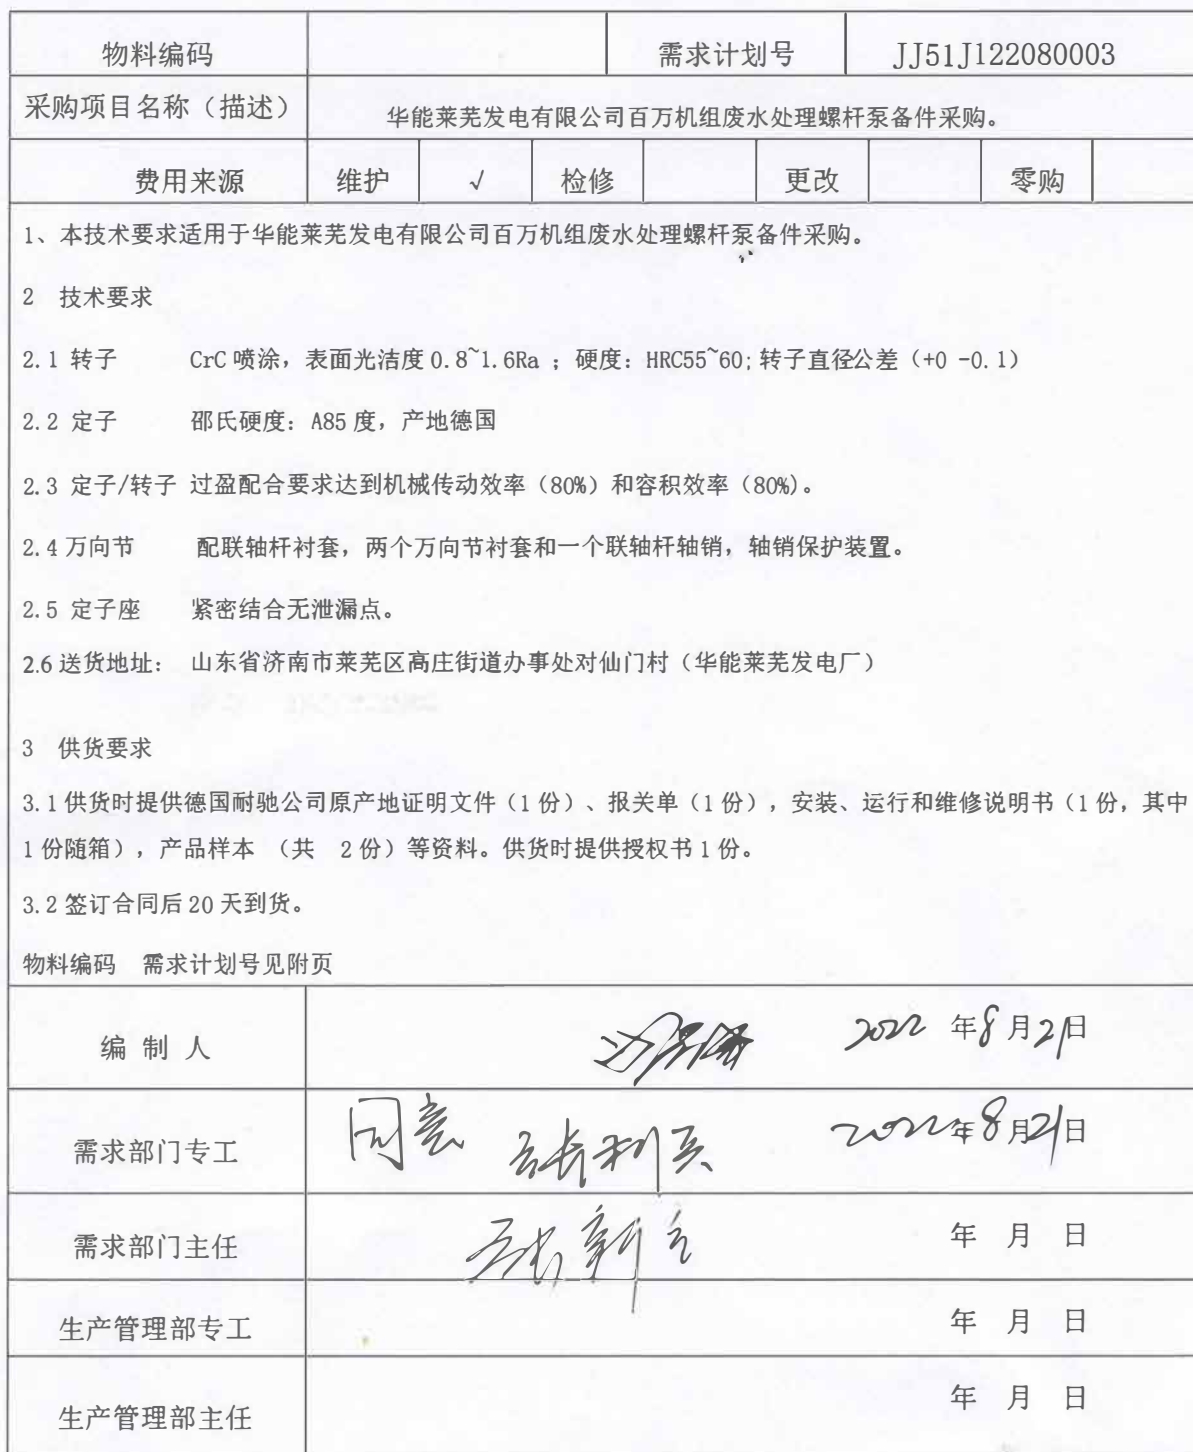 物料编码 需求计划号 JJ51J122080003
采购项目名称（描述） 华能莱芜发电有限公司百万机组废水处理螺杆泵备件采购。
费用来源 维护 √ 检修 更改 零购
1、本技术要求适用于华能莱芜发电有限公司百万机组废水处理螺杆泵备件采购。
2 技术要求
2.1 转子 CrC 喷涂，表面光洁度 0.8~1.6Ra ；硬度：HRC55~60; 转子直径公差（+0 -0.1）
2.2 定子 邵氏硬度：A85 度，产地德国
2.3 定子/转子 过盈配合要求达到机械传动效率（80%）和容积效率（80%)。
2.4 万向节 配联轴杆衬套，两个万向节衬套和一个联轴杆轴销，轴销保护装置。
2.5 定子座 紧密结合无泄漏点。
2.6 送货地址： 山东省济南市莱芜区高庄街道办事处对仙门村（华能莱芜发电厂）
3 供货要求
3.1 供货时提供德国耐驰公司原产地证明文件（1 份）、报关单（1 份），安装、运行和维修说明书（1 份，其中
1 份随箱），产品样本 （共 2 份）等资料。供货时提供授权书 1 份。
3.2 签订合同后 20 天到货。
物料编码 需求计划号见附页
编 制 人 2022 年 8 月 21 日
需求部门专工 同意 2022 年 8 月 21 日
需求部门主任 年 月 日
生产管理部专工 年 月 日
生产管理部主任 年 月 日